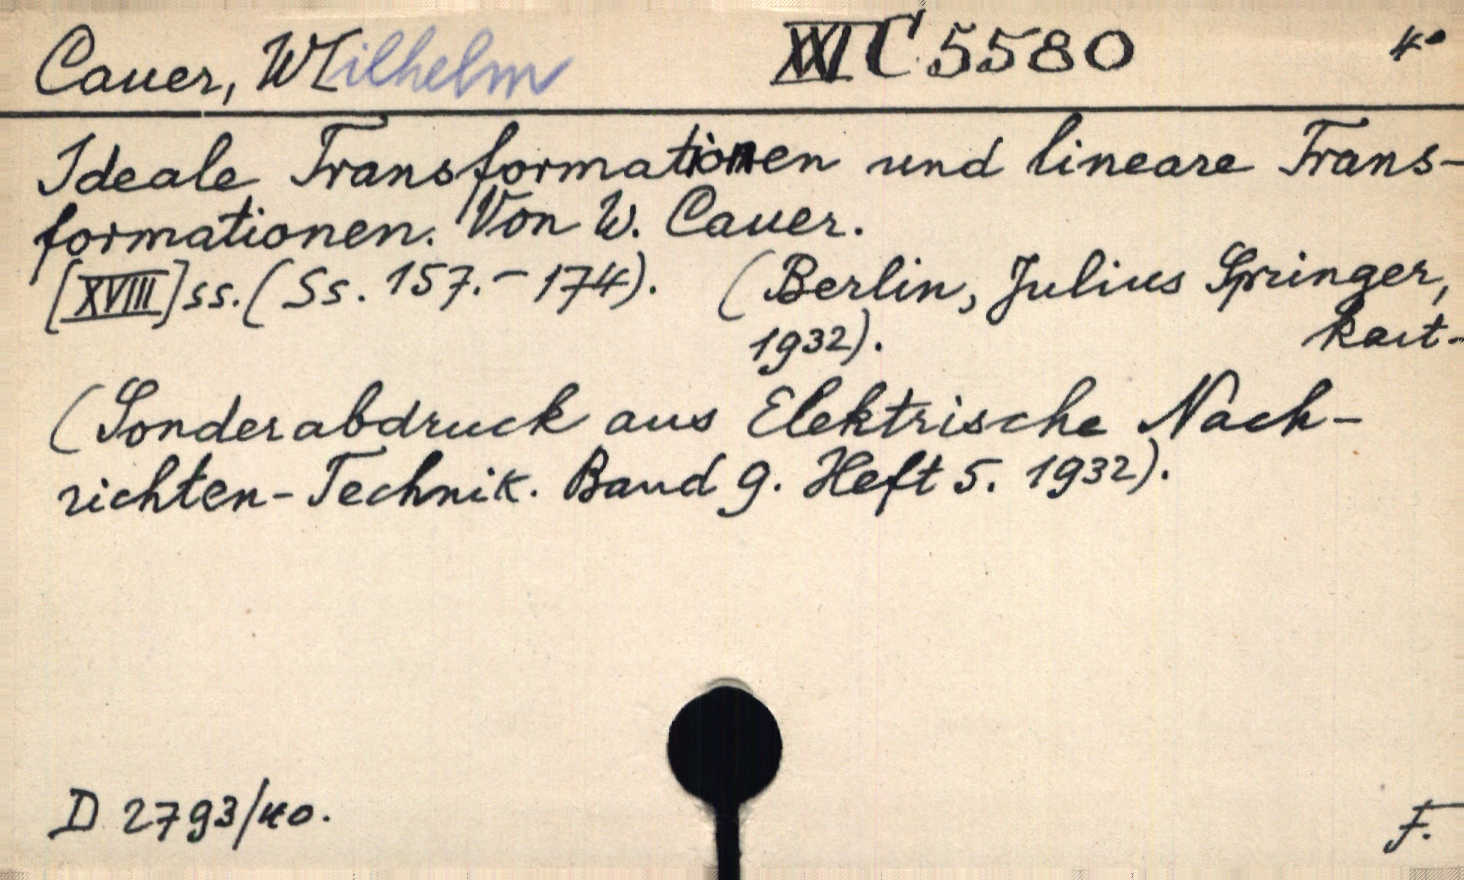 Cauer, W[ilhelm XXI C 5580 4°
Ideale Transformationen und lineare Trans-
formationen. Von W. Cauer.
[XVIII] ss. (Ss. 157.-174). (Berlin, Julius Springer,
1932). kart-
(Sonderabdruck aus Elektrische Nach-
richten-Technik. Band 9. Heft 5. 1932).
D 2793/40. F.